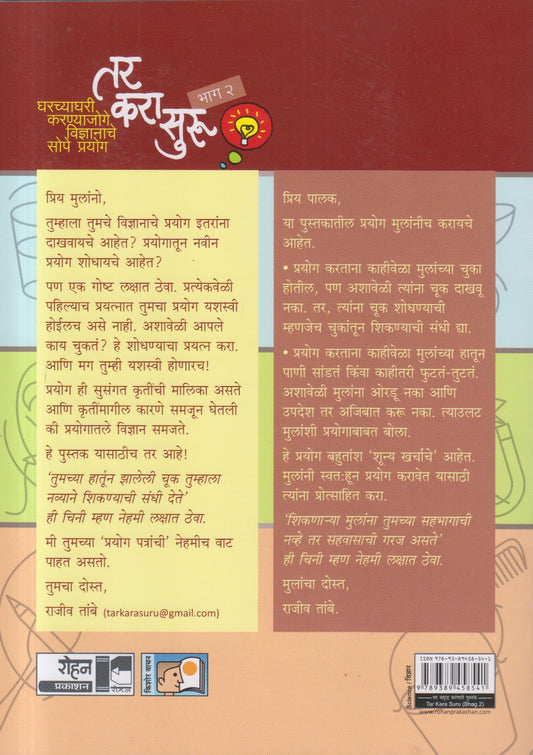 तर
करा
सुरू
भाग २
घरच्याघरी
करण्याजोगे
विज्ञानाचे
सोपे प्रयोग
प्रिय मुलांनो,
तुम्हाला तुमचे विज्ञानाचे प्रयोग इतरांना
दाखवायचे आहेत? प्रयोगातून नवीन
प्रयोग शोधायचे आहेत?
पण एक गोष्ट लक्षात ठेवा. प्रत्येकवेळी
पहिल्याच प्रयत्नात तुमचा प्रयोग यशस्वी
होईलच असे नाही. अशावेळी आपले
काय चुकतं? हे शोधण्याचा प्रयत्न करा.
आणि मग तुम्ही यशस्वी होणारच!
प्रयोग ही सुसंगत कृतींची मालिका असते
आणि कृतींमागील कारणे समजून घेतली
की प्रयोगातले विज्ञान समजते.
हे पुस्तक यासाठीच तर आहे!
‘तुमच्या हातून झालेली चूक तुम्हाला
नव्याने शिकण्याची संधी देते’
ही चिनी म्हण नेहमी लक्षात ठेवा.
मी तुमच्या ‘प्रयोग पत्रांची’ नेहमीच वाट
पाहत असतो.
तुमचा दोस्त,
राजीव तांबे (tarkarasuru@gmail.com)
प्रिय पालक,
या पुस्तकातील प्रयोग मुलांनीच करायचे
आहेत.
• प्रयोग करताना काहीवेळा मुलांच्या चुका
होतील, पण अशावेळी त्यांना चूक दाखवू
नका. तर, त्यांना चूक शोधण्याची
म्हणजेच चुकांतून शिकण्याची संधी द्या.
• प्रयोग करताना काहीवेळा मुलांच्या हातून
पाणी सांडतं किंवा काहीतरी फुटतं-तुटतं.
अशावेळी मुलांना ओरडू नका आणि
उपदेश तर अजिबात करू नका. त्याउलट
मुलांशी प्रयोगाबाबत बोला.
हे प्रयोग बहुतांश ‘शून्य खर्चाचे’ आहेत.
मुलांनी स्वत:हून प्रयोग करावेत यासाठी
त्यांना प्रोत्साहित करा.
‘शिकणाऱ्या मुलांना तुमच्या सहभागाची
नव्हे तर सहवासाची गरज असते’
ही चिनी म्हण नेहमी लक्षात ठेवा.
मुलांचा दोस्त,
राजीव तांबे.
रोहन
प्रकाशन
रोहन
किशोर वाचन
Science / विज्ञान
ISBN 978-93-89458-54-1
9789389458541
Tar Kara Suru (Bhag 2)
www.rohanprakashan.com